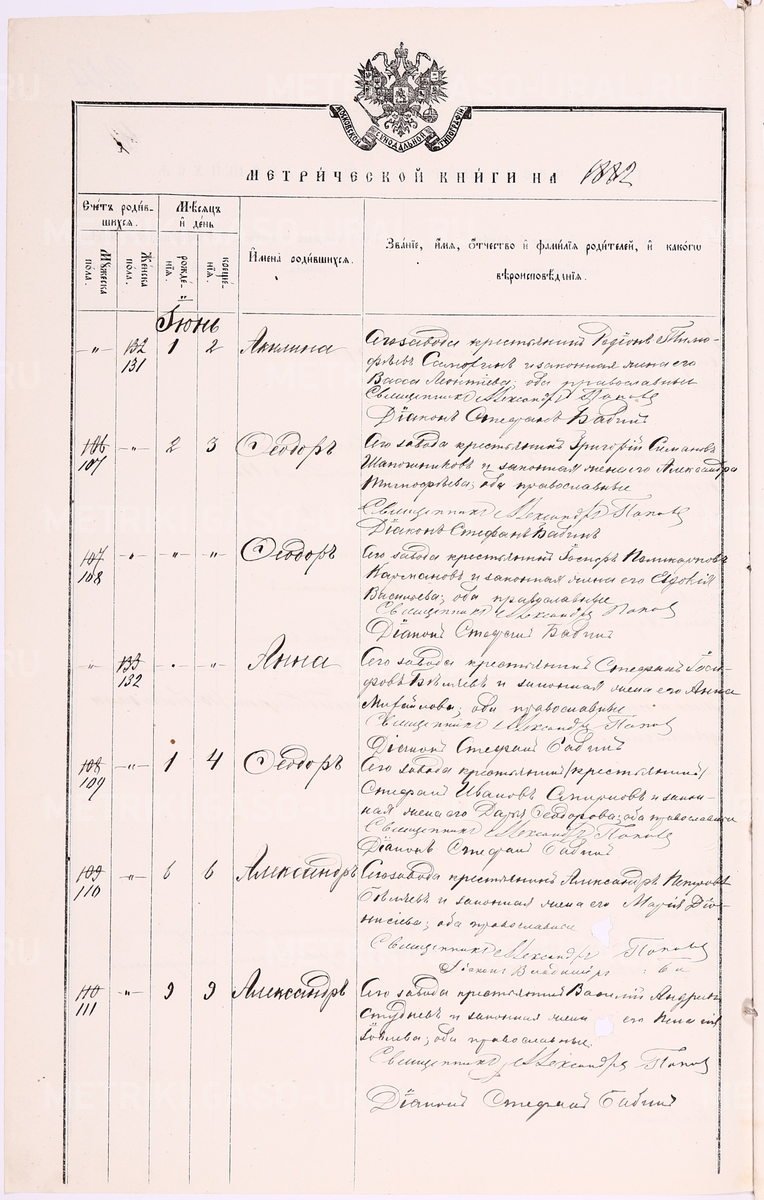 МОСКОВСКОЙ СѴНОДАЛЬНОЙ ТИПОГРАФІИ
МЕТРИ́ЧЕСКОЙ КНИ́ГИ НА 1882
Сче́тъ роди́в-
шихся.
Мѣ́сяцъ
и҆ де́нь
Мꙋ́жеска
пола.
Же́нска
пола.
рожде́-
нїѧ.
креще́-
нїѧ.
И҆мена̀ роди́вшихся.
Зва́нїе, и҆́мя, ѻ҆́тчество и҆ фами́лїѧ роди́телей, и҆ како́гѡ
вѣроисповѣ́данїѧ.
Іюнь
-"- 132 1 2 Акилина Сего завода крестьянинъ Родіонъ Тимо-
131 фѣевъ и законная жена его
Васса Леонтіева; оба православные
Священникъ Александръ Попов
Діаконъ Стефанъ Бабинъ
106 -"- 2 3 Ѳеодоръ Сего завода крестьянинъ Григорій Симановъ
107 Шапошниковъ и законная жена его Александра
Тимофѣева; оба православные
Священникъ Александръ Попов
Діаконъ Стефанъ Бабинъ
107 -"- " " Ѳеодоръ Сего завода крестьянинъ
108 и законная жена его
Васильева; оба православные
Священникъ Александръ Попов
Діаконъ Стефанъ Бабинъ
" 133 " " Анна Сего завода крестьянинъ Стефанъ Іоси-
132 фовъ Бѣляевъ и законная жена его Анна
Михайлова; оба православные
Священникъ Александръ Попов
Діаконъ Стефанъ Бабинъ
108 -"- 1 4 Ѳеодоръ Сего завода крестьянинъ /крестьянинъ/
109 Стефанъ Ивановъ Смирновъ и закон-
ная жена его Дарья Ѳеодорова; оба православные
Священникъ Александръ Попов
Діаконъ Стефанъ Бабинъ
109 -"- 6 6 Александръ Сего завода крестьянинъ Александръ Петровъ
110 Бѣляевъ и законная жена его Марія Діо-
нисіева; оба православные
Священникъ Александръ Попов
110 -"- 9 9 Александръ Сего завода крестьянинъ Василій
111 и законная жена его
оба православные.
Священникъ Александръ Попов
Діаконъ Стефанъ Бабинъ